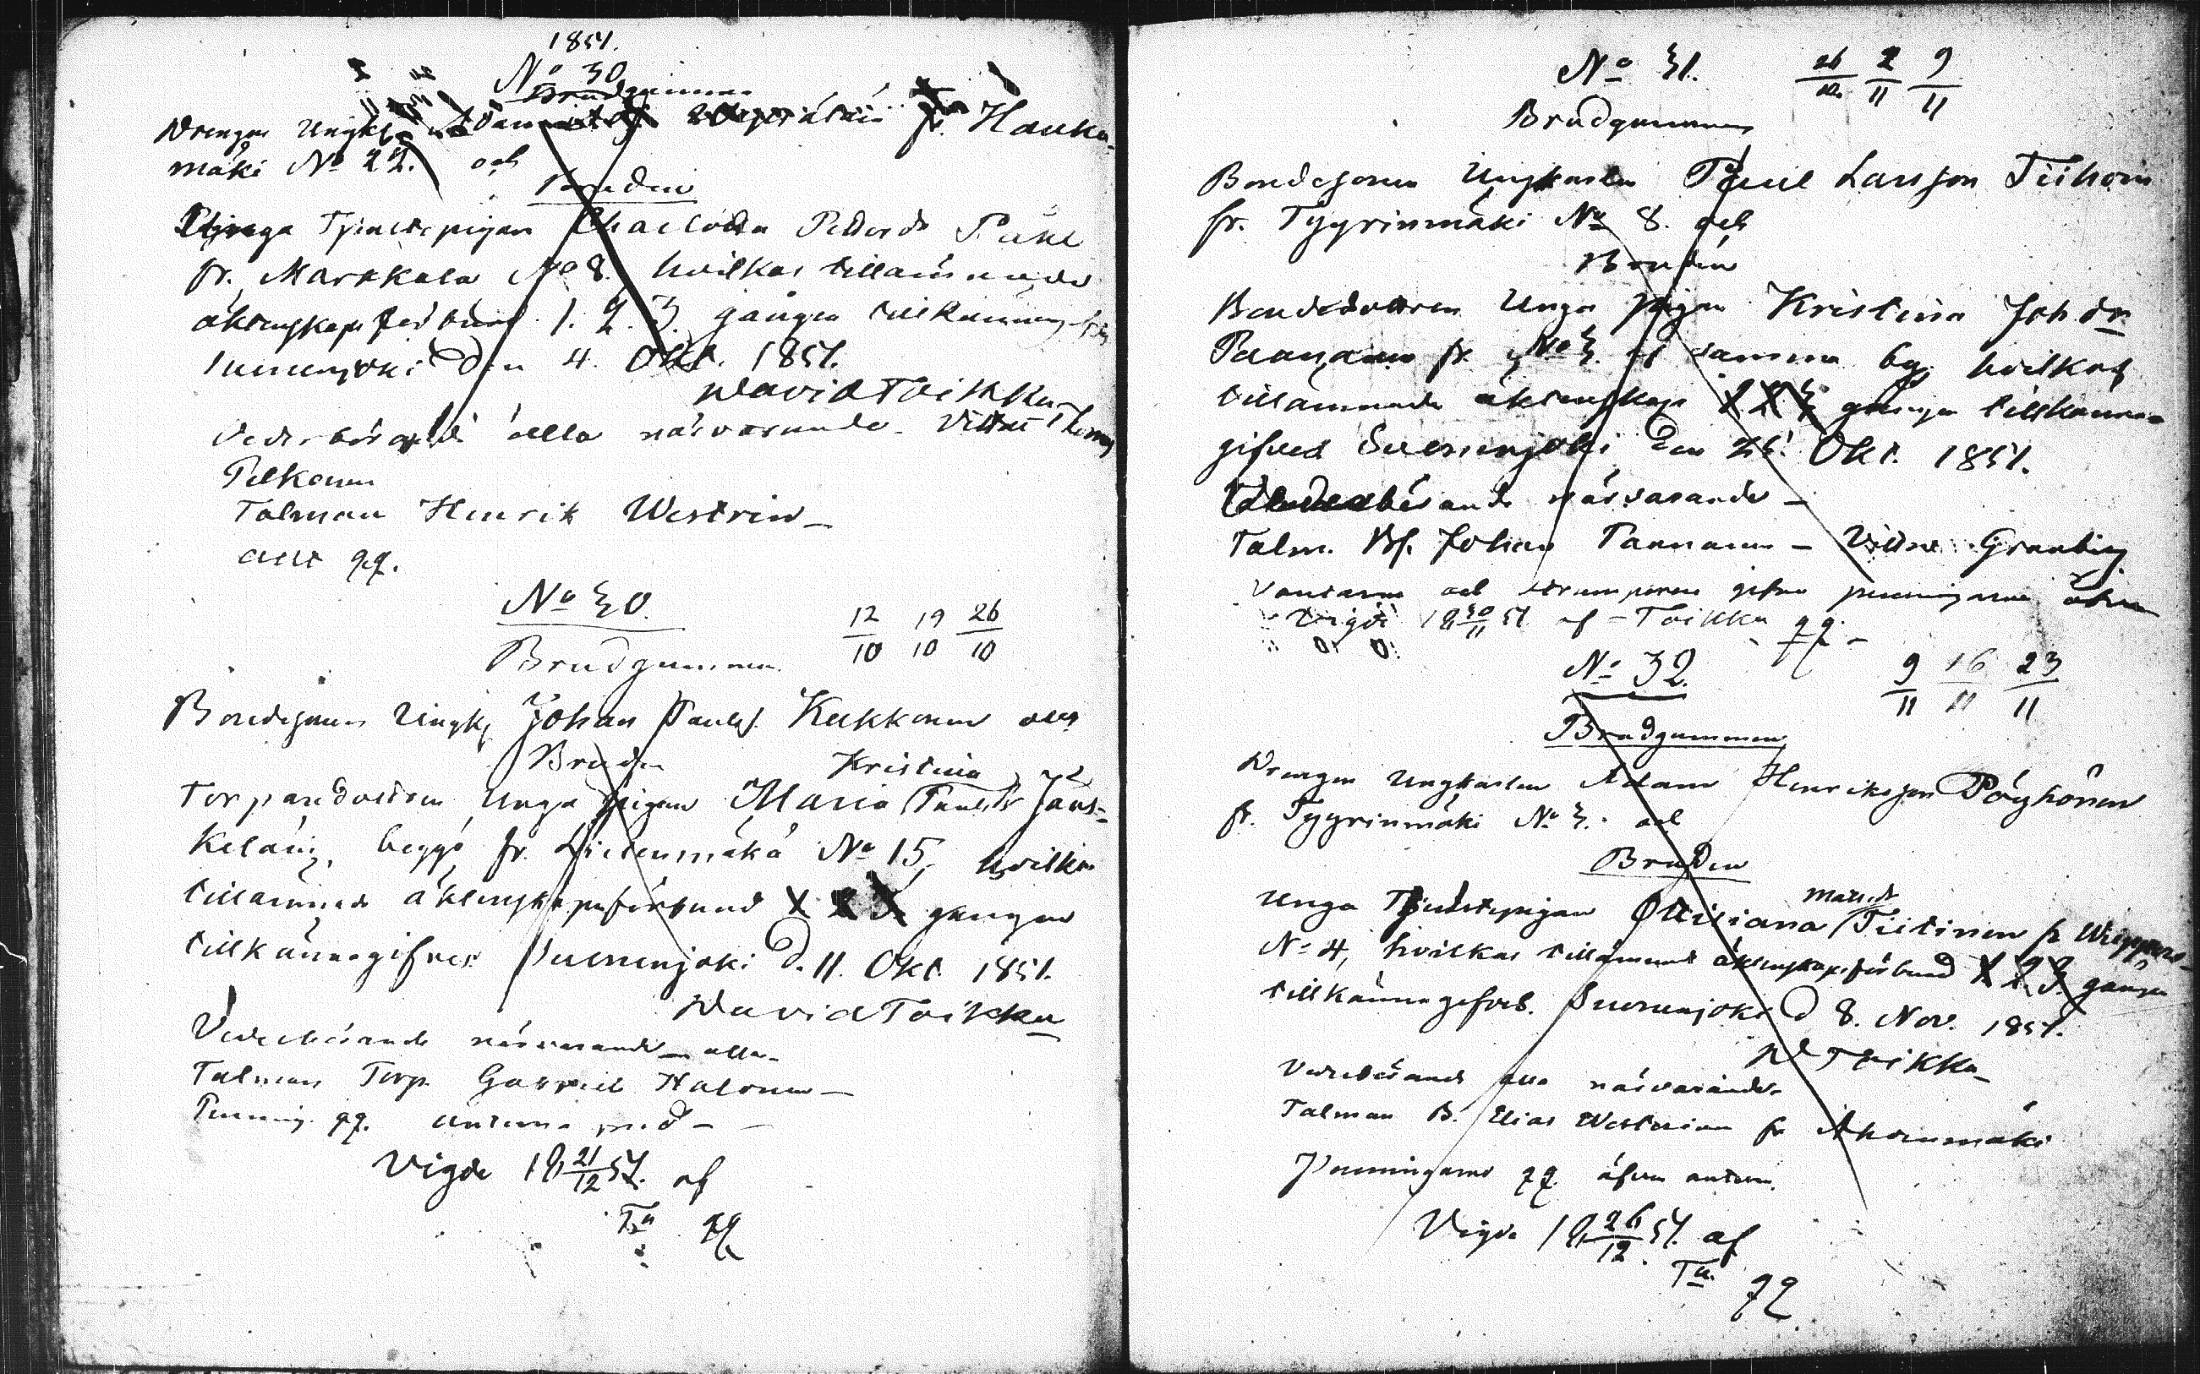 1851.
No 30
Brudgummen
Drengen Ungk. fr. Hauka-
mäki No 22. och
Bruden
Unga Tjenstepigan Charlotta Petterdr
fr. Markkala No 8. hvilkas tillämnade
äktenskaps förbund 1. 2. 3. gången
Suonenjoki den 4. Okt. 1851.
David Toikka
Vederbörande alla närvarande. Vittne
Pelkonen
Talman Henrik Westrin
allt qq.
No 30.
12/10 19/10 26/10
Brudgummen
Bondesonen Ungk. Johan Paulss. Kukkonen och
Bruden
Kristina
Torparedottren Unga pigan Maria Paulsdr Jäns-
keläin, begge fr. Lietenmäki No 15, hvilkas
tillämnade äktenskapsförbund 1 2 3 gången
tillkännagifves Suonenjoki d. 11. Okt. 1851.
David Toikka
Vederbörande närvarande alla
Talman Torp. Gabriel Halonen
Penning. qq.
Vigde 18 21/12 51. af
Ta qq
No 31.
26/10 2/11 9/11
Brudgummen
Bondesonen Ungkarlen Paul Larsson Tiihoin
fr. Tyyrinmäki No 8. och
Bruden
Bondedottren Unga pigan Kristina Joh.dr
Paanan fr. No 3. af samma by, hvilkas
tillämnade äktenskap 1 2 3 gången tillkänna-
gifves Suonenjoki den 25. Okt. 1851.
Vederbörande närvarande
Talm. Bd. Johan Paananen – Vittne Granberg
Vantarne och strumporna gifne penningarne äfven
Vigde 18 30/11 51 af Toikka qq
No 32.
9/11 16/11 23/11
Brudgummen
Drengen Ungkarlen Adam Henriksson Pöyhönen
fr. Tyyrinmäki No 3. och
Bruden
Matsdr
Unga Tjenstepigan Ottiliana Tiitinen fr
No 4, hvilkas tillämnade äktenskapsförbund 1 2 3. gången
tillkännagifves. Suonenjoki d 8. Nov. 1851.
D Toikka
Vederbörande alla närvarande
Talman B. Elias Westerinen fr Ahonmäki
Penningarne qq. äfven
Vigde 18 26/12 51. af
Ta. qq